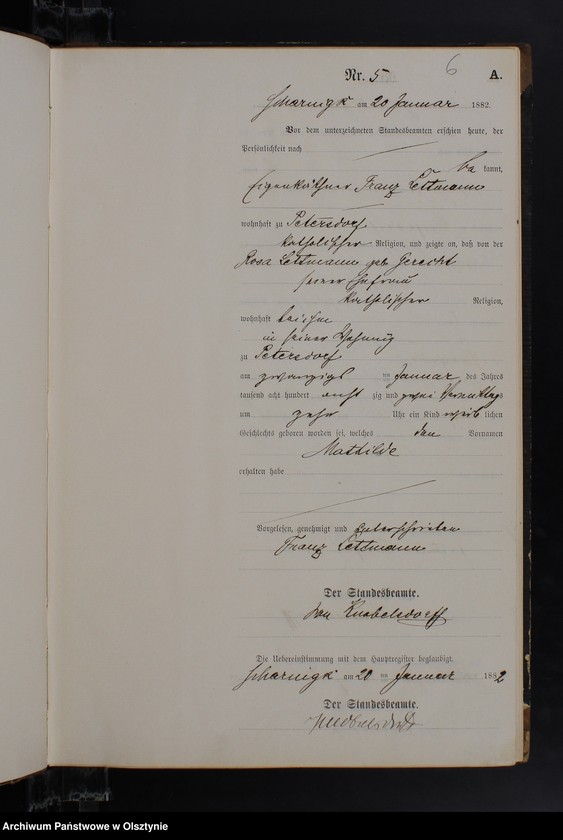 Nr. 5
6
A.
Scharnigk am 20 Januar 1882.
Vor dem unterzeichneten Standesbeamten erschien heute, der
Persönlichkeit nach
be kannt,
Eigenkäthner Franz Lettmann
wohnhaft zu Petersdorf
katholischer Religion, und zeigte an, daß von der
Rosa Lettmann geb. Gerecht
seiner Ehefrau
katholischer Religion,
wohnhaft bei ihm
in seiner Wohnung
zu Petersdorf
am zwanzigsten Januar des Jahres
tausend acht hundert acht zig und zwei Vormittags
um zehn Uhr ein Kind weib lichen
Geschlechts geboren worden sei, welches den Vornamen
Mathilde
erhalten habe
Vorgelesen, genehmigt und unterschrieben
Franz Lettmann
Der Standesbeamte.
von Knobelsdorff
Die Uebereinstimmung mit dem Hauptregister beglaubigt.
Scharnigk am 20 ten Januar 1882
Der Standesbeamte.
Archiwum Państwowe w Olsztynie